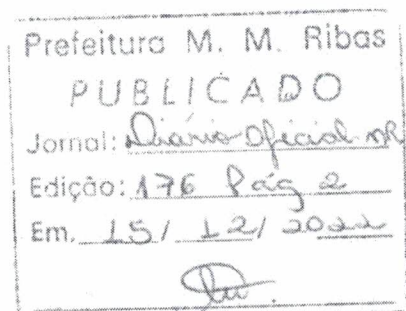 Prefeitura M. M. Ribas
PUBLICADO
Jornal: Diário Oficial MR
Edição: 176 Pág 2
Em, 15/ 12/ 2022